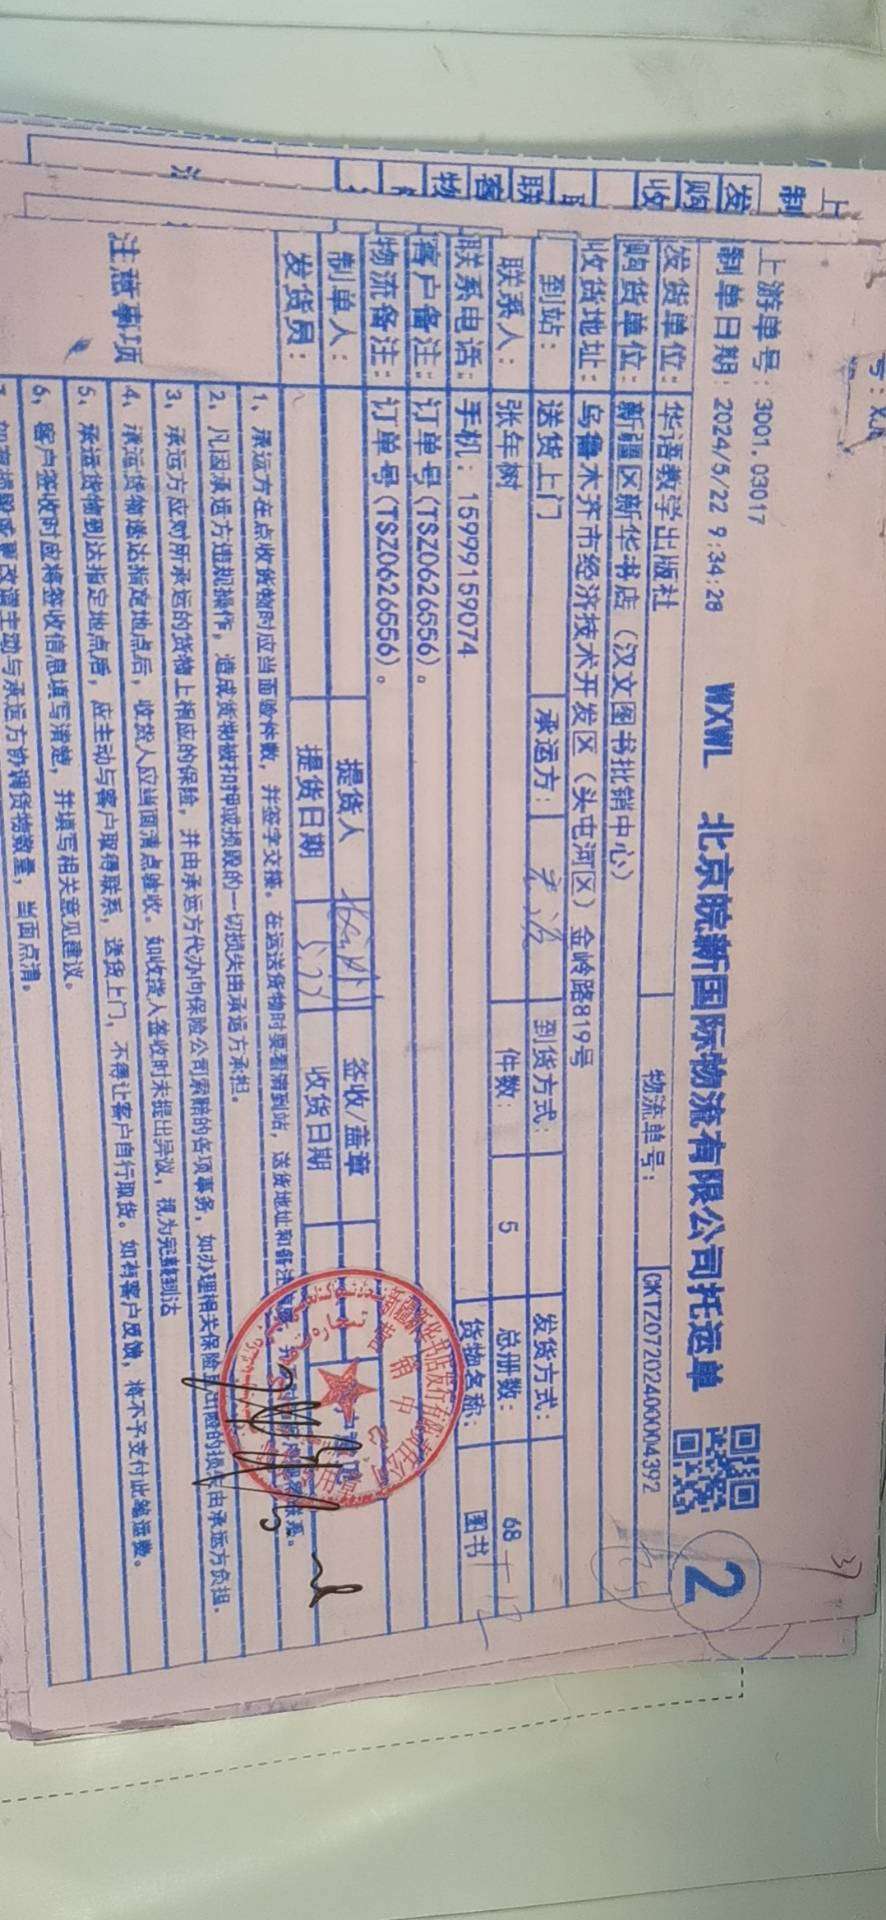 上游单号：3001.03017
制单日期：2024/5/22 9:34:28 WXWL 北京皖新国际物流有限公司托运单 2
发货单位：华语教学出版社 物流单号：CKTZ0720240004392
购货单位：新疆区新华书店（汉文图书批销中心）
收货地址：乌鲁木齐市经济技术开发区（头屯河区）金岭路819号
到站： 送货上门 承运方： 到货方式： 发货方式：
联系人： 张年树 件数： 5 总册数： 68
联系电话：手机：15999159074 货物名称： 图书
客户备注：订单号(TSZ0626556)。
物流备注：订单号(TSZ0626556)。
制单人： 提货人 签收/盖章
发货员： 提货日期 收货日期
注意事项
1、承运方在点收货物时应当面验件数，并签字交接。在运送货物时要看清到站，送货地址和备注
2、凡因承运方违规操作，造成货物被扣押或损毁的一切损失由承运方承担。
3、承运方应对所承运的货物上相应的保险，并由承运方代办向保险公司索赔的各项事务，如办理相关保险 由承运方负担。
4、承运货物送达指定地点后，收货人应当面清点验收。如收货人签收时未提出异议，视为完整到达
5、承运货物到达指定地点后，应主动与客户取得联系，送货上门，不得让客户自行取货。如有客户反馈，将不予支付此笔运费。
6、客户签收时应将签收信息填写清楚，并填写相关意见建议。
主动与承运方协调货物数量，当面点清。